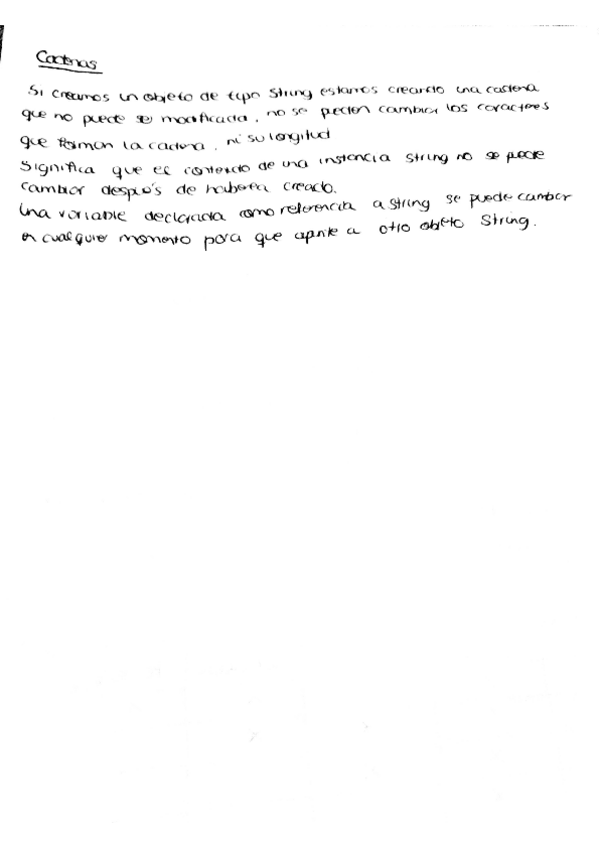 Cadenas
Si creamos un objeto de tipo String estamos creando una cadena
que no puede ser modificada, no se pueden cambiar los caracteres
que forman la cadena, ni su longitud
Significa que el contenido de una instancia string no se puede
cambiar después de haberla creado.
Una variable declarada como referencia a string se puede cambiar
en cualquier momento para que apunte a otro objeto String.